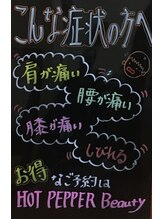 こんな症状の方へ
肩が痛い
腰が痛い
膝が痛い
しびれる
お得
なご予約は
HOT PEPPER Beauty